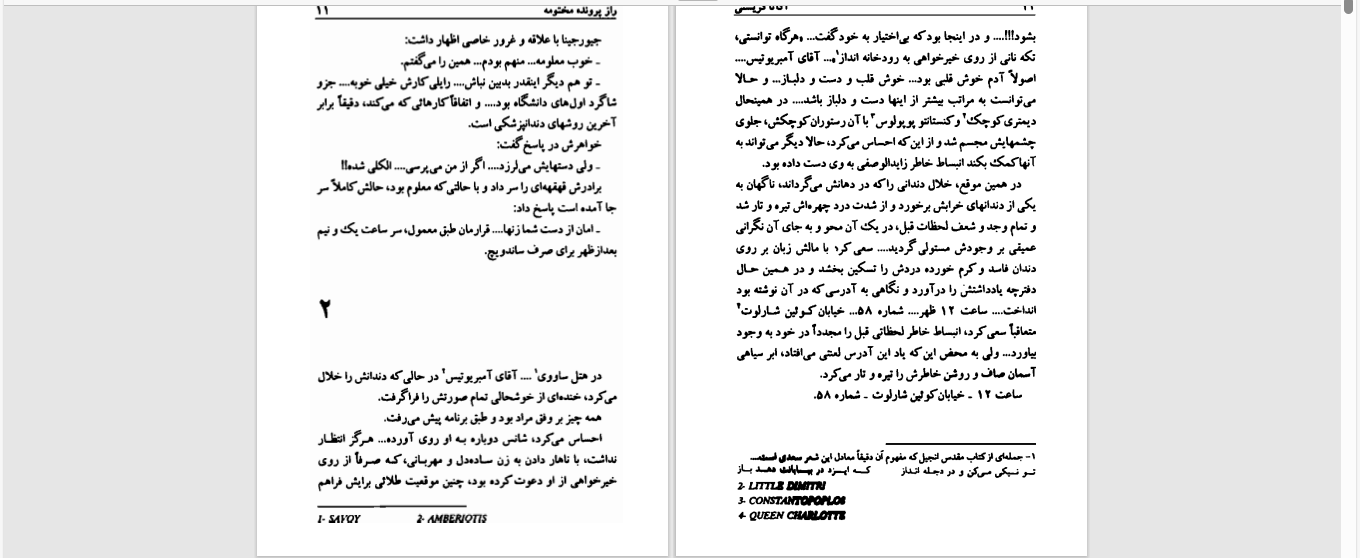 راز پرونده مختومه ۱۱
جیورجینا با علاقه و غرور خاصی اظهار داشت:
ـ خوب معلومه... منهم بودم... همین را می‌گفتم.
ـ تو هم دیگر اینقدر بدبین نباش.... رایلی کارش خیلی خوبه.... جزو
شاگرد اول‌های دانشگاه بود.... و اتفاقاً کارهائی که می‌کند، دقیقاً برابر
آخرین روشهای دندانپزشکی است.
خواهرش در پاسخ گفت:
ـ ولی دستهایش می‌لرزد.... اگر از من می‌پرسی.... الکلی شده!!
برادرش قهقهه‌ای را سر داد و با حالتی که معلوم بود، حالش کاملاً سر
جا آمده است پاسخ داد:
ـ امان از دست شما زنها.... قرارمان طبق معمول، سر ساعت یک و نیم
بعدازظهر برای صرف ساندویچ.
۲
در هتل ساووی۱ .... آقای آمبریوتیس۲ در حالی که دندانش را خلال
می‌کرد، خنده‌ای از خوشحالی تمام صورتش را فراگرفت.
همه چیز بر وفق مراد بود و طبق برنامه پیش می‌رفت.
احساس می‌کرد، شانس دوباره به او روی آورده... هرگز انتظار
نداشت، با ناهار دادن به زن ساده‌دل و مهربانی، که صرفاً از روی
خیرخواهی از او دعوت کرده بود، چنین موقعیت طلائی برایش فراهم
1- SAVOY 2- AMBERIOTIS
بشود!!!.... و در اینجا بود که بی‌اختیار به خود گفت... «هرگاه توانستی،
تکه نانی از روی خیرخواهی به رودخانه انداز۱»... آقای آمبریوتیس....
اصولاً آدم خوش قلبی بود... خوش قلب و دست و دلباز... و حالا
می‌توانست به مراتب بیشتر از اینها دست و دلباز باشد.... در همینحال
دیمتری کوچک۲ و کنستانتو پوپولوس۳ با آن رستوران کوچکش، جلوی
چشمهایش مجسم شد و از این که احساس می‌کرد، حالا دیگر می‌تواند به
آنها کمک بکند انبساط خاطر زایدالوصفی به وی دست داده بود.
در همین موقع، خلال دندانی را که در دهانش می‌گرداند، ناگهان به
یکی از دندانهای خرابش برخورد و از شدت درد چهره‌اش تیره و تار شد
و تمام وجد و شعف لحظات قبل، در یک آن محو و به جای آن نگرانی
عمیقی بر وجودش مستولی گردید.... سعی کرد با مالش زبان بر روی
دندان فاسد و کرم خورده دردش را تسکین بخشد و در همین حال
دفترچه یادداشتش را درآورد و نگاهی به آدرسی که در آن نوشته بود
انداخت.... ساعت ۱۲ ظهر.... شماره ۵۸... خیابان کوئین شارلوت۴
متعاقباً سعی کرد، انبساط خاطر لحظاتی قبل را مجدداً در خود به وجود
بیاورد... ولی به محض این که یاد این آدرس لعنتی می‌افتاد، ابر سیاهی
آسمان صاف و روشن خاطرش را تیره و تار می‌کرد.
ساعت ۱۲ ـ خیابان کوئین شارلوت ـ شماره ۵۸.
۱- جمله‌ای از کتاب مقدس انجیل که مفهوم آن دقیقاً معادل این شعر سعدی است...
تو نیکی می‌کن و در دجله انداز که ایزد در بیابانت دهد باز
2- LITTLE DIMITRI
3- CONSTANTOPOPLOS
4- QUEEN CHARLOTTE